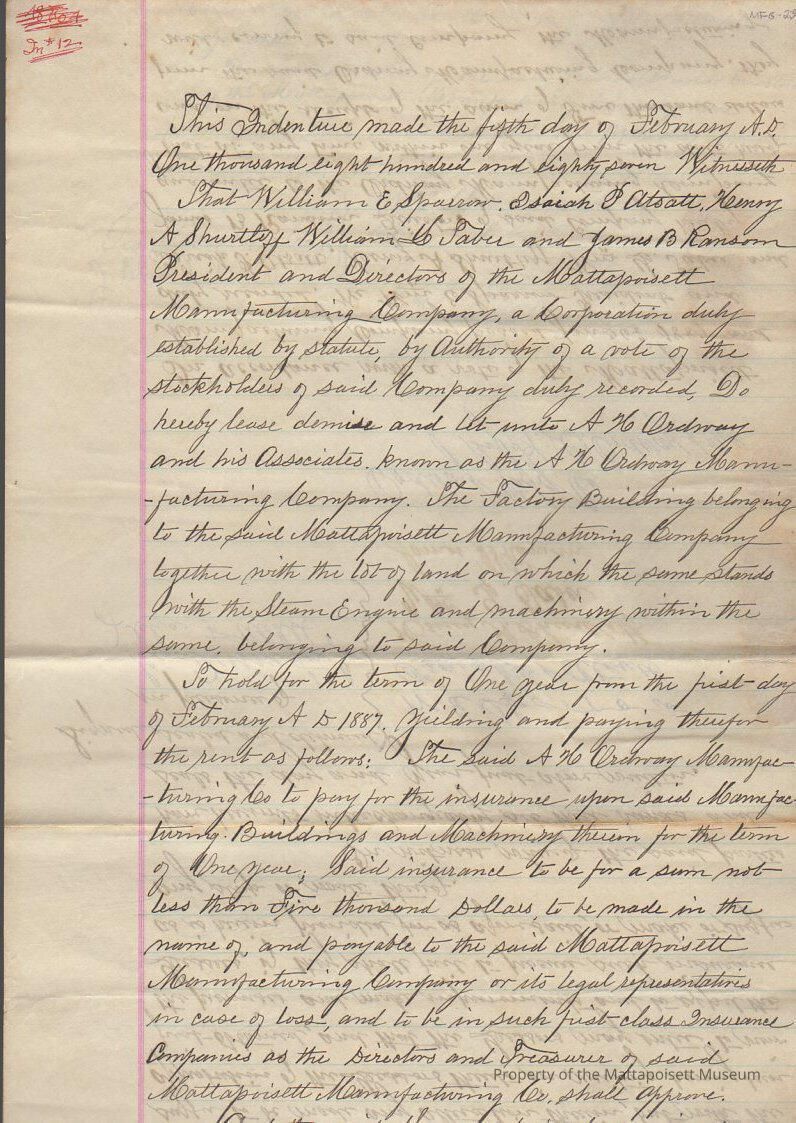 In # 12
MFG-23
This Indenture made the fifth day of February A.D.
One thousand eight hundred and eighty seven Witnesseth
That William E Sparrow. Isaiah P Atsatt, Henry
A Shurtleff William L Taber and James B Ransom
President and Directors of the Mattapoisett
Manufacturing Company, a Corporation duly
established by statute, by Authority of a vote of the
stockholders of said Company duly recorded, Do
hereby lease demise and let unto A H Ordway
and his Associates. known as the A H Ordway Manu-
-facturing Company. The Factory Building belonging
to the said Mattapoisett Manufacturing Company
together with the lot of land on which the same stands
with the Steam Engine and machinery within the
same. belonging to said Company.
To hold for the term of One year from the first day
of February A D 1887. yielding and paying therefor
the rent as follows: The said A H Ordway Manufac-
-turing Co to pay for the insurance upon said Manufac-
turing. Buildings and Machinery therein for the term
of One year; Said insurance to be for a sum not
less than Five thousand Dollars, to be made in the
name of, and payable to the said Mattapoisett
Manufacturing Company or its legal representatives
in case of loss, and to be in such first class Insurance
Companies as the Directors and Treasurer of said
Mattapoisett Manufacturing Co. shall approve.
Property of the Mattapoisett Museum